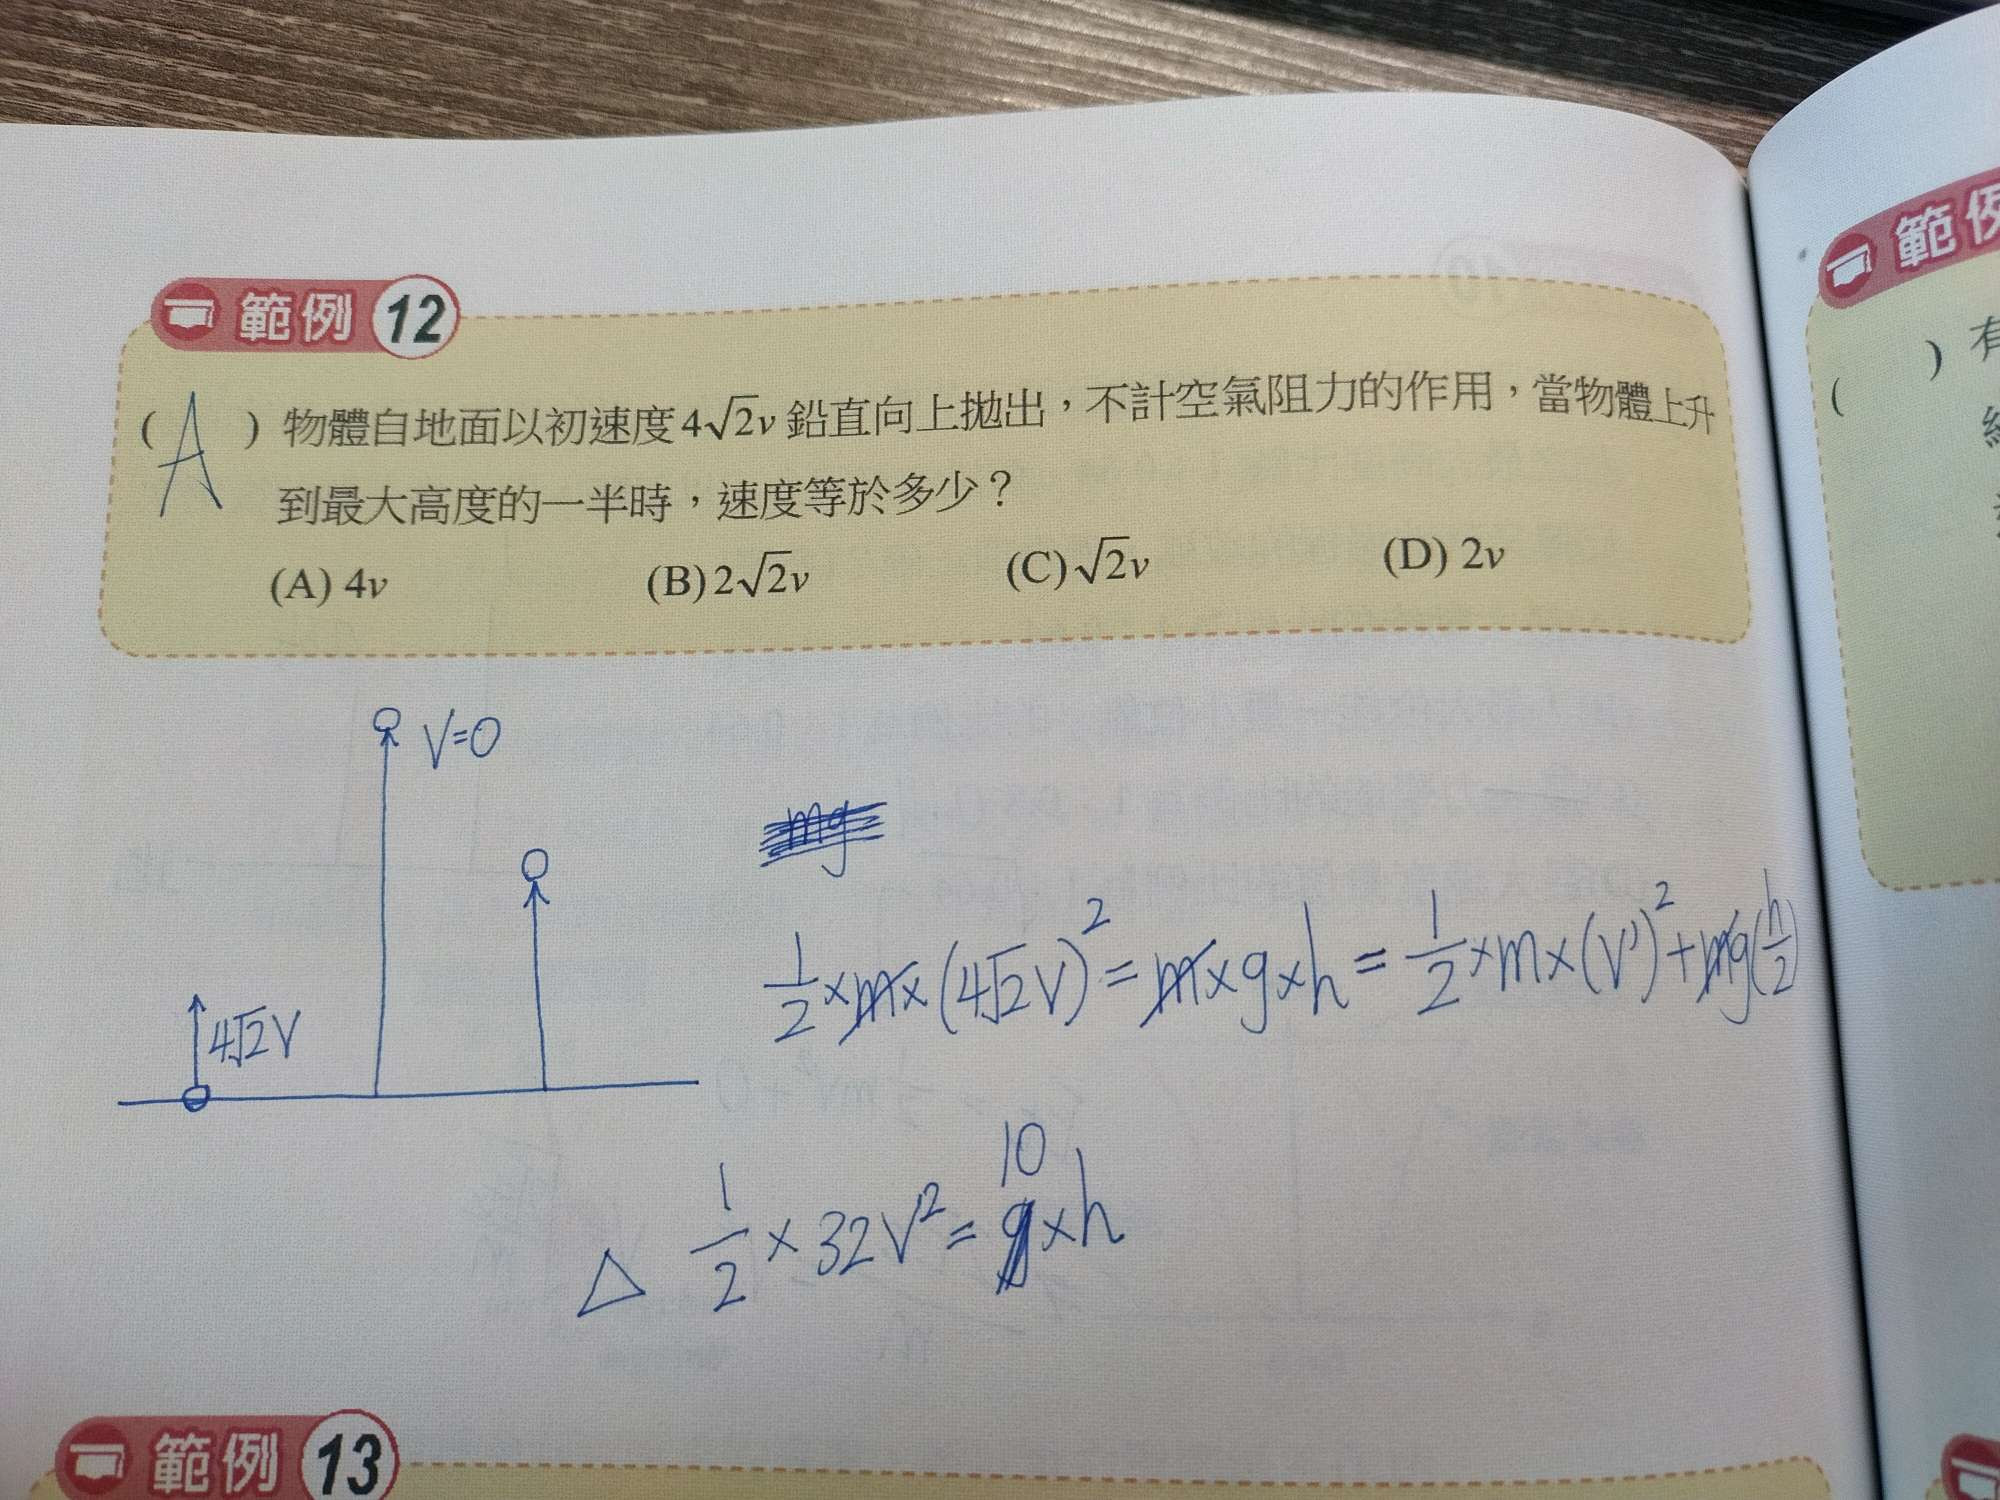 範例 12
( A ) 物體自地面以初速度 4√2v 鉛直向上拋出，不計空氣阻力的作用，當物體上升
到最大高度的一半時，速度等於多少？
(A) 4v (B) 2√2v (C) √2v (D) 2v
V=0
4√2V
mg
1/2 × m × (4√2V)² = m × g × h = 1/2 × m × (V')² + mg(h/2)
△ 1/2 × 32V² = g × h
10
範例 13
範例
( ) 有